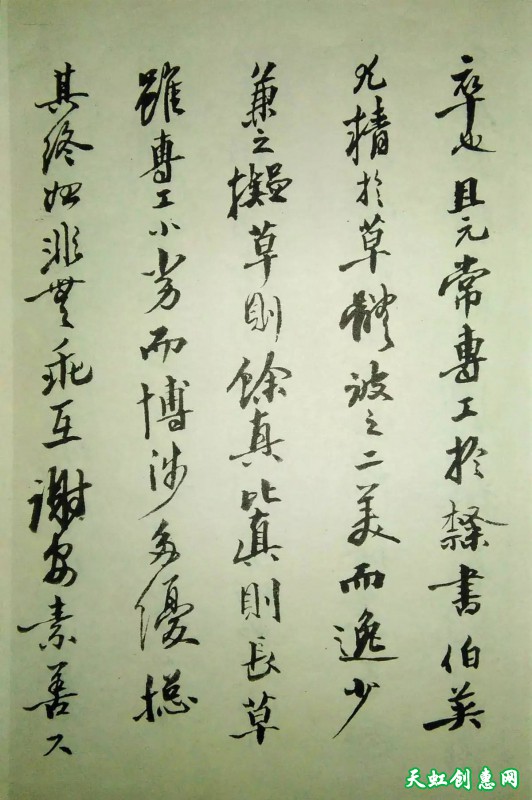 卒也且元常專工於隸書伯英
尤精於草體彼之二美而逸少
兼之擬草則餘真比真則長草
雖專工小劣而博涉多優揔
其終始非無乖互謝安素善尺
天虹创惠网